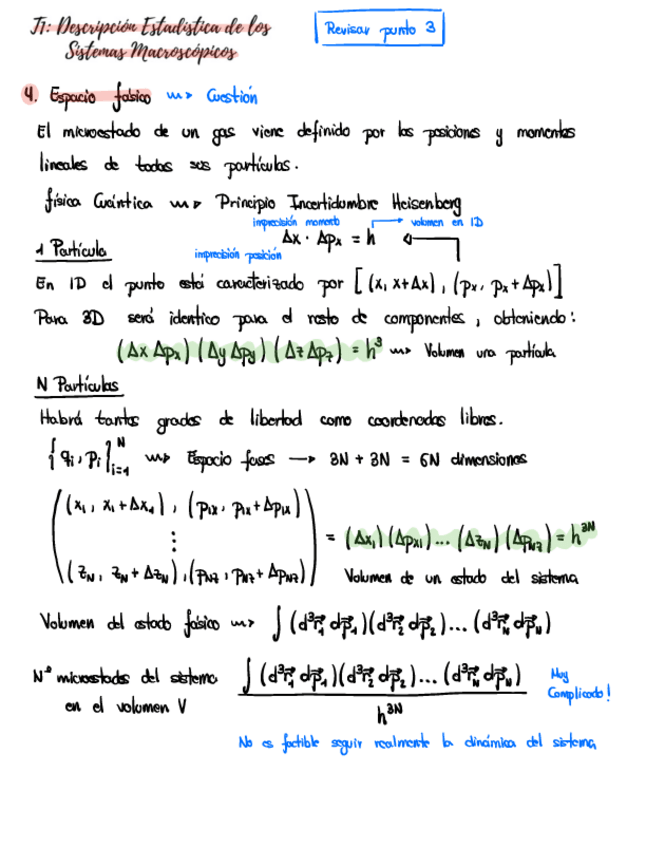 T1: Descripción Estadística de los
Sistemas Macroscópicos
Revisar punto 3
4. Espacio fásico ⇝ Cuestión
El microestado de un gas viene definido por las posiciones y momentos
lineales de todas sus partículas.
física Cuántica ⇝ Principio Incertidumbre Heisenberg
imprecisión momento
volumen en 1D
1 Partícula
Δx · Δpx = h
imprecisión posición
En 1D el punto está caracterizado por [(x, x+Δx), (px, px+Δpx)]
Para 3D será identico para el resto de componentes, obteniendo:
(Δx Δpx)(Δy Δpy)(Δz Δpz) = h³ ⇝ Volumen una partícula
N Partículas
Habrá tantos grados de libertad como coordenadas libres.
{qi, pi}ᴺᵢ₌₁ ⇝ Espacio fases → 3N + 3N = 6N dimensiones
(x₁, x₁+Δx₁), (p1x, p1x+Δp1x)
⋮
(zN, zN+ΔzN), (pNz, pNz+ΔpNz)
= (Δx₁)(Δpx1)...(ΔzN)(ΔpNz) = h³ᴺ
Volumen de un estado del sistema
Volumen del estado fásico ⇝ ∫(d³r⃗₁ dp⃗₁)(d³r⃗₂ dp⃗₂)...(d³r⃗N dp⃗N)
Nº microestados del sistema
en el volumen V
∫(d³r⃗₁ dp⃗₁)(d³r⃗₂ dp⃗₂)...(d³r⃗N dp⃗N)
h³ᴺ
Muy
Complicado!
No es factible seguir realmente la dinámica del sistema